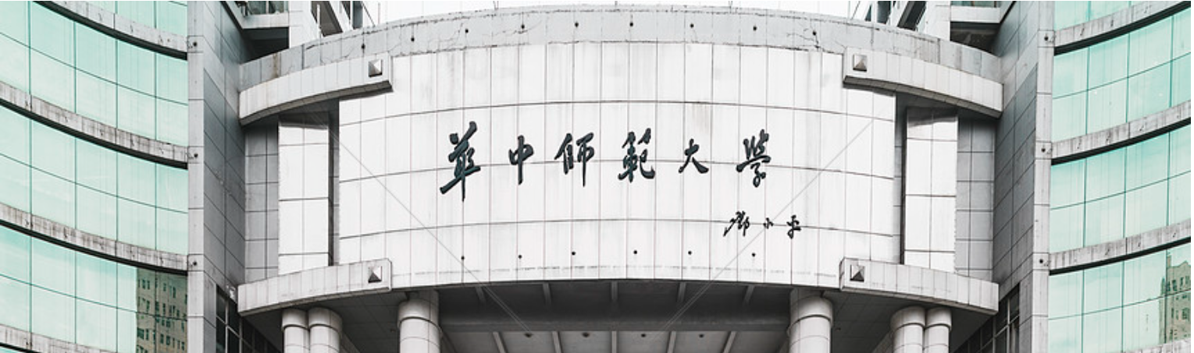 華中师範大學
鄧小平